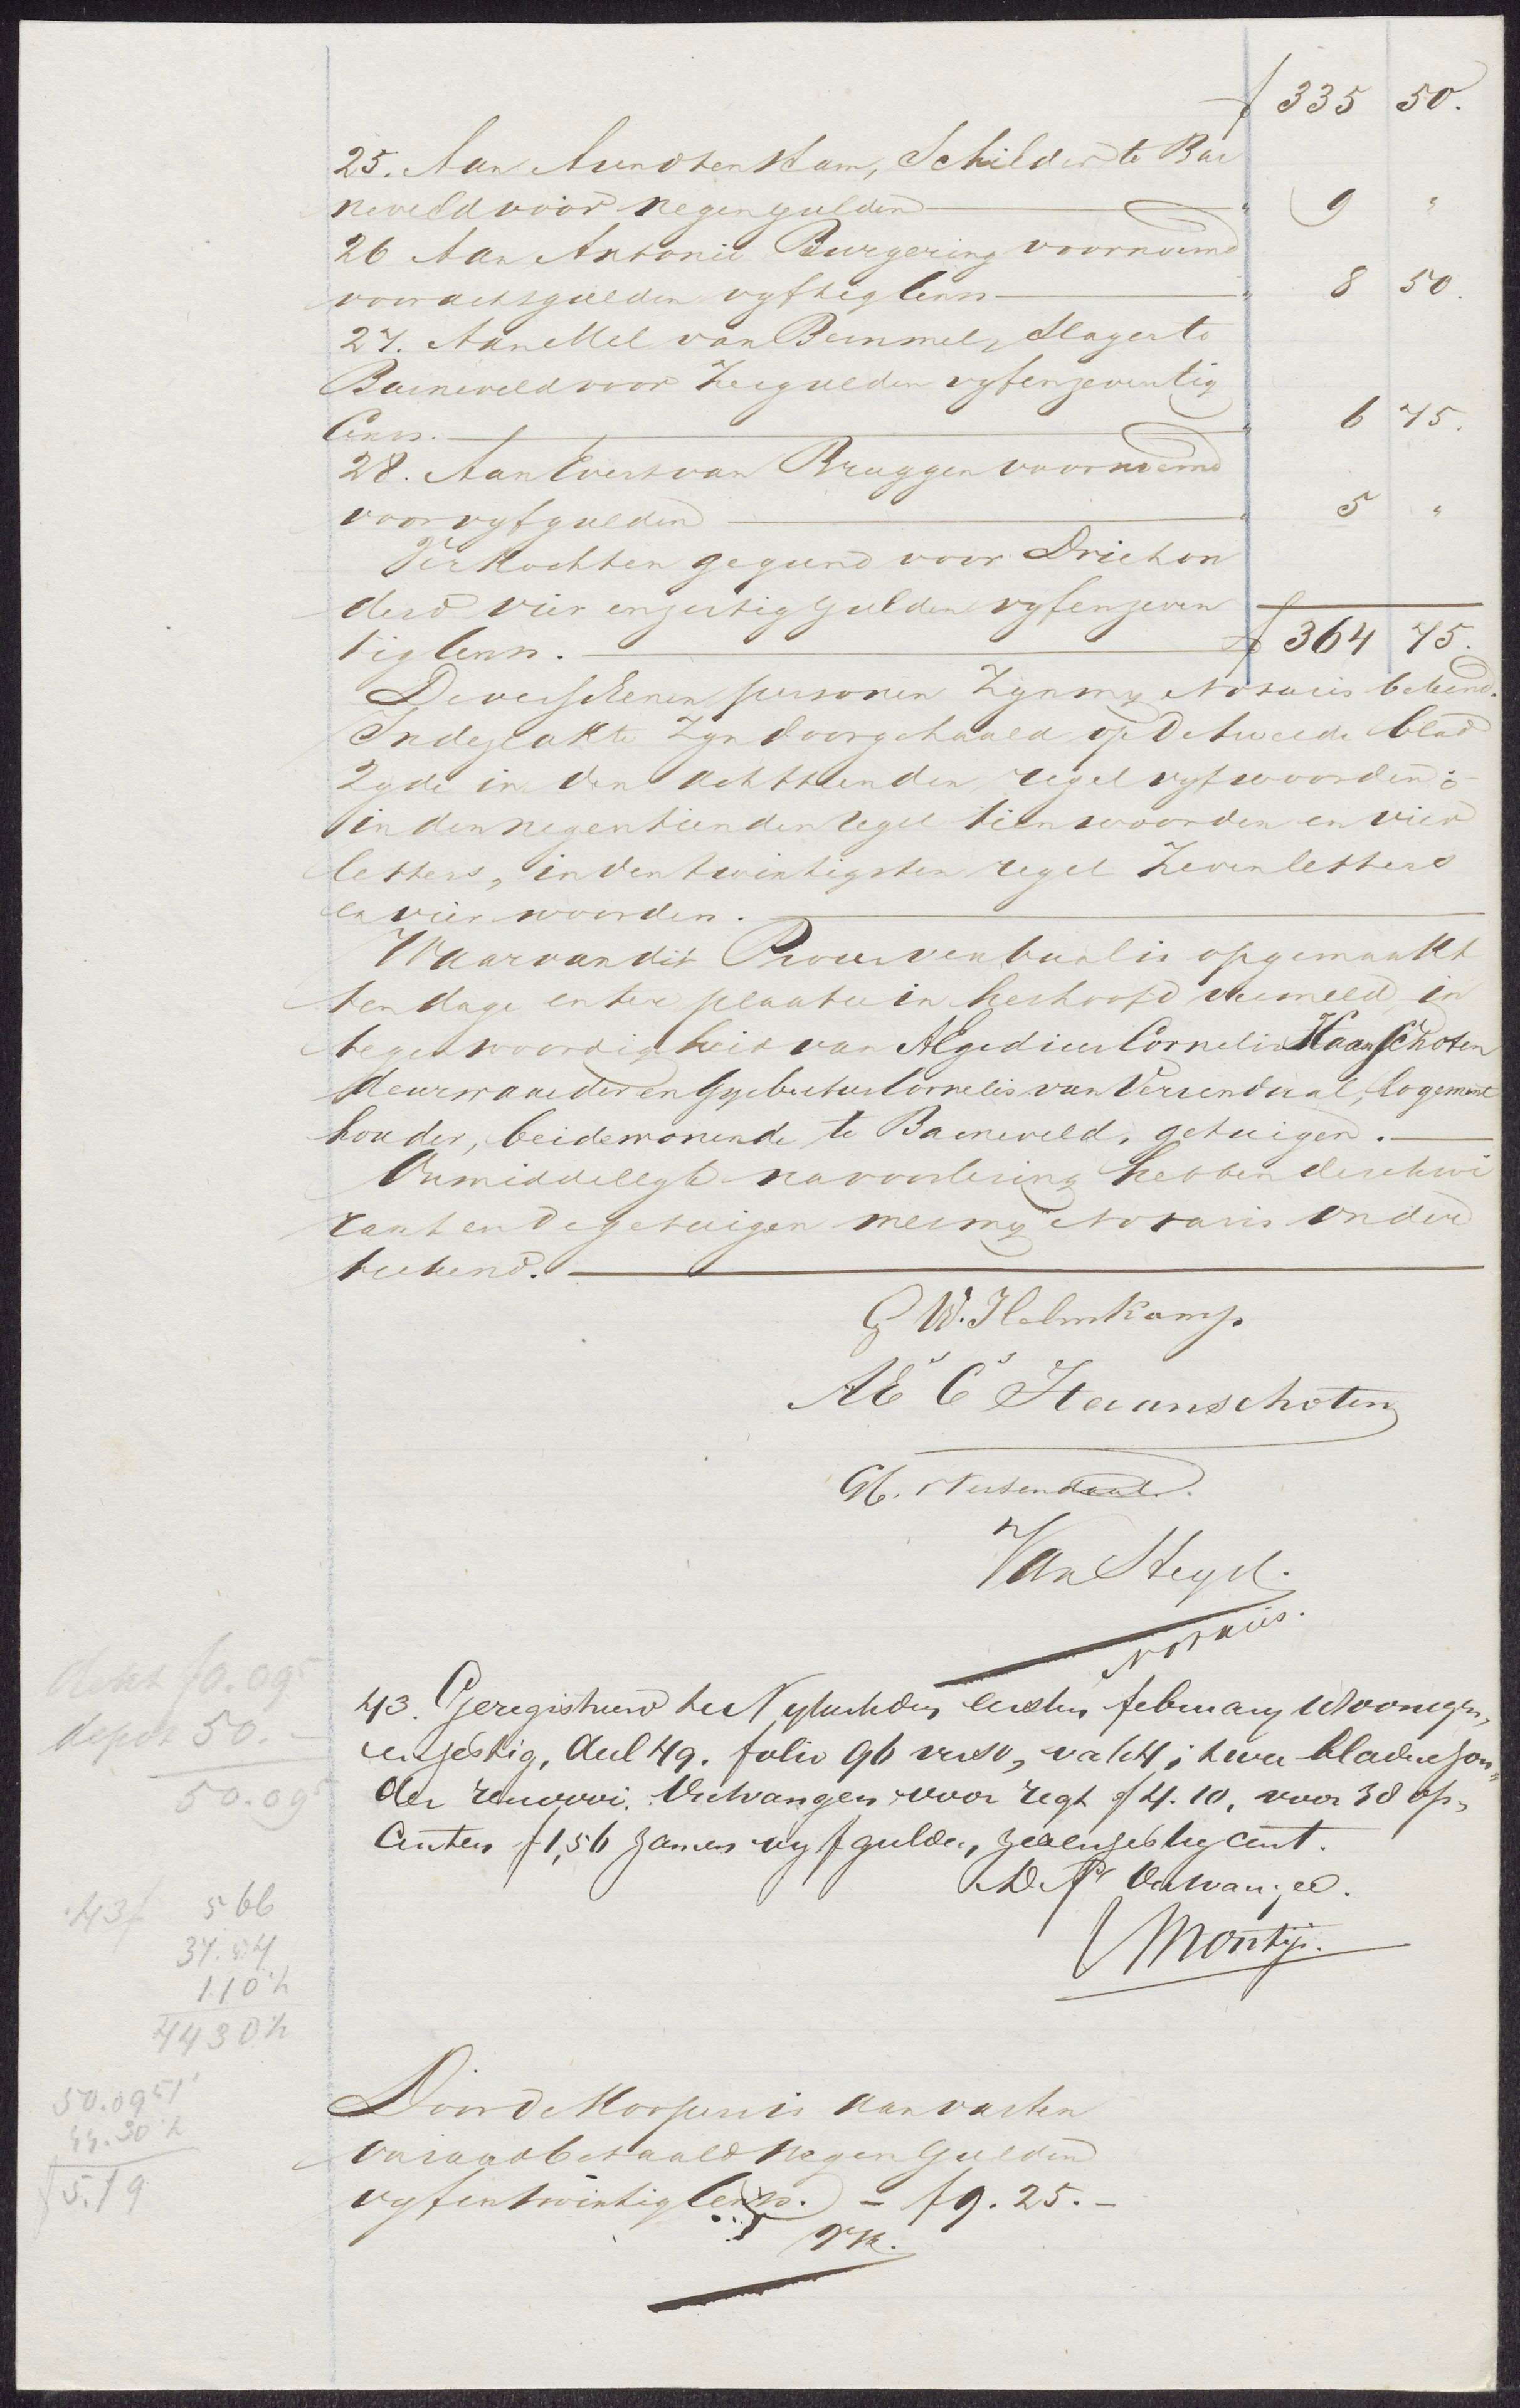 f 335 50.
25. Aan Arend ten Ham, Schilder te Bar
neveld voor negen gulden " 9 "
26 Aan Antonie Burgering voornoemd
voor acht gulden vyftig Cents " 8 50.
27. Aan Mel van Bemmel, Slager te
Barneveld voor Zes gulden vyfenzeventig
Cents. " 6 75.
28. Aan Evert van Bruggen voornoemd
voor vyf gulden " 5 "
Verkocht en gegund voor Driehon
derd vier en zestig gulden vyfenzeven
tig Cents. f 364 75.
De verschenen personen Zyn my Notaris bekend.
In deze akte Zyn doorgehaald op de tweede blad
Zyde in den achttienden regel vyf woorden
in den negentienden regel tien woorden en vier
letters, in den twintigsten regel Zeven letters
en vier woorden.
Waarvan dit Proces verbaal is opgemaakt
ten dage en ter plaatse in het hoofd vermeld, in
tegenwoordigheid van AEgedius Cornelis Haanschoten
deurwaarder en Gysbertus Cornelis van Versendaal, logement
houder, beide wonende te Barneveld, getuigen.
Onmiddellyk na voorlezing hebben de rekwi
rant en de getuigen met my Notaris onder
teekend.
G W. Helmkamp.
AEs Cs Haanschoten
GC. Versendaal.
Van Steyl.
Notaris.
dekt f0.095
depot 50. –
50.095
43. Geregistreerd te Nykerk den eersten february
en zestig, deel 49. folio 96 verso, vak 4; twee bladen zon„
der renvooi. Ontvangen voor regt f 4.10, voor 38 op„
Centen f 1,56 zamen vyf gulden, zes en zestig cent.
De Ontvanger.
Montijn.
43 f 5 66
37.54
1.10½
4430½
50.095
44.30½
f 5.79
Door de Koopers is aan vasten
onraad betaald Negen Gulden
vyfentwintig Cents. – f 9. 25. –